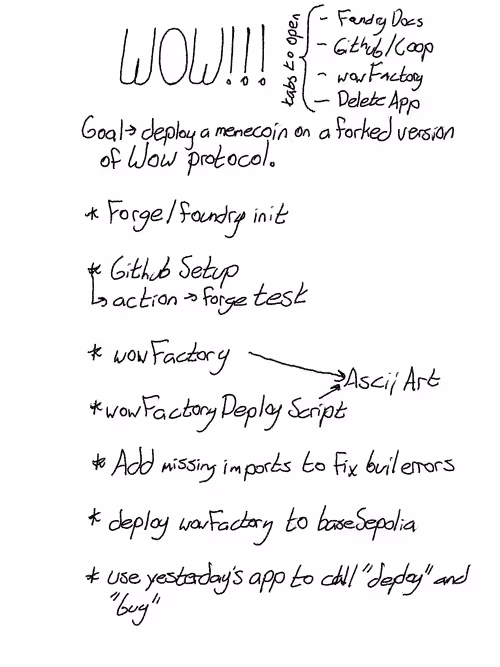 WOW!!!
tabs to open
- Foundry Docs
- Github/Coop
- wowFactory
- Delete App
Goal → deploy a memecoin on a forked version
of Wow protocol.
* Forge/foundry init
* Github Setup
↳ action → forge test
* wowFactory
Ascii Art
* wowFactory Deploy Script
* Add missing imports to fix builerrors
* deploy wowFactory to baseSepolia
* use yesterday's app to call "deploy" and
"buy"